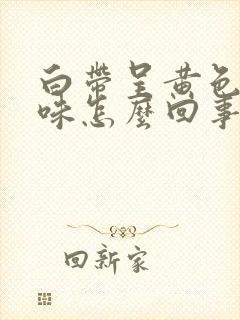 白帶呈黃色
味怎麼回事
回新家